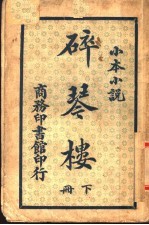 小本小說
碎琴樓
下冊
商務印書館印行